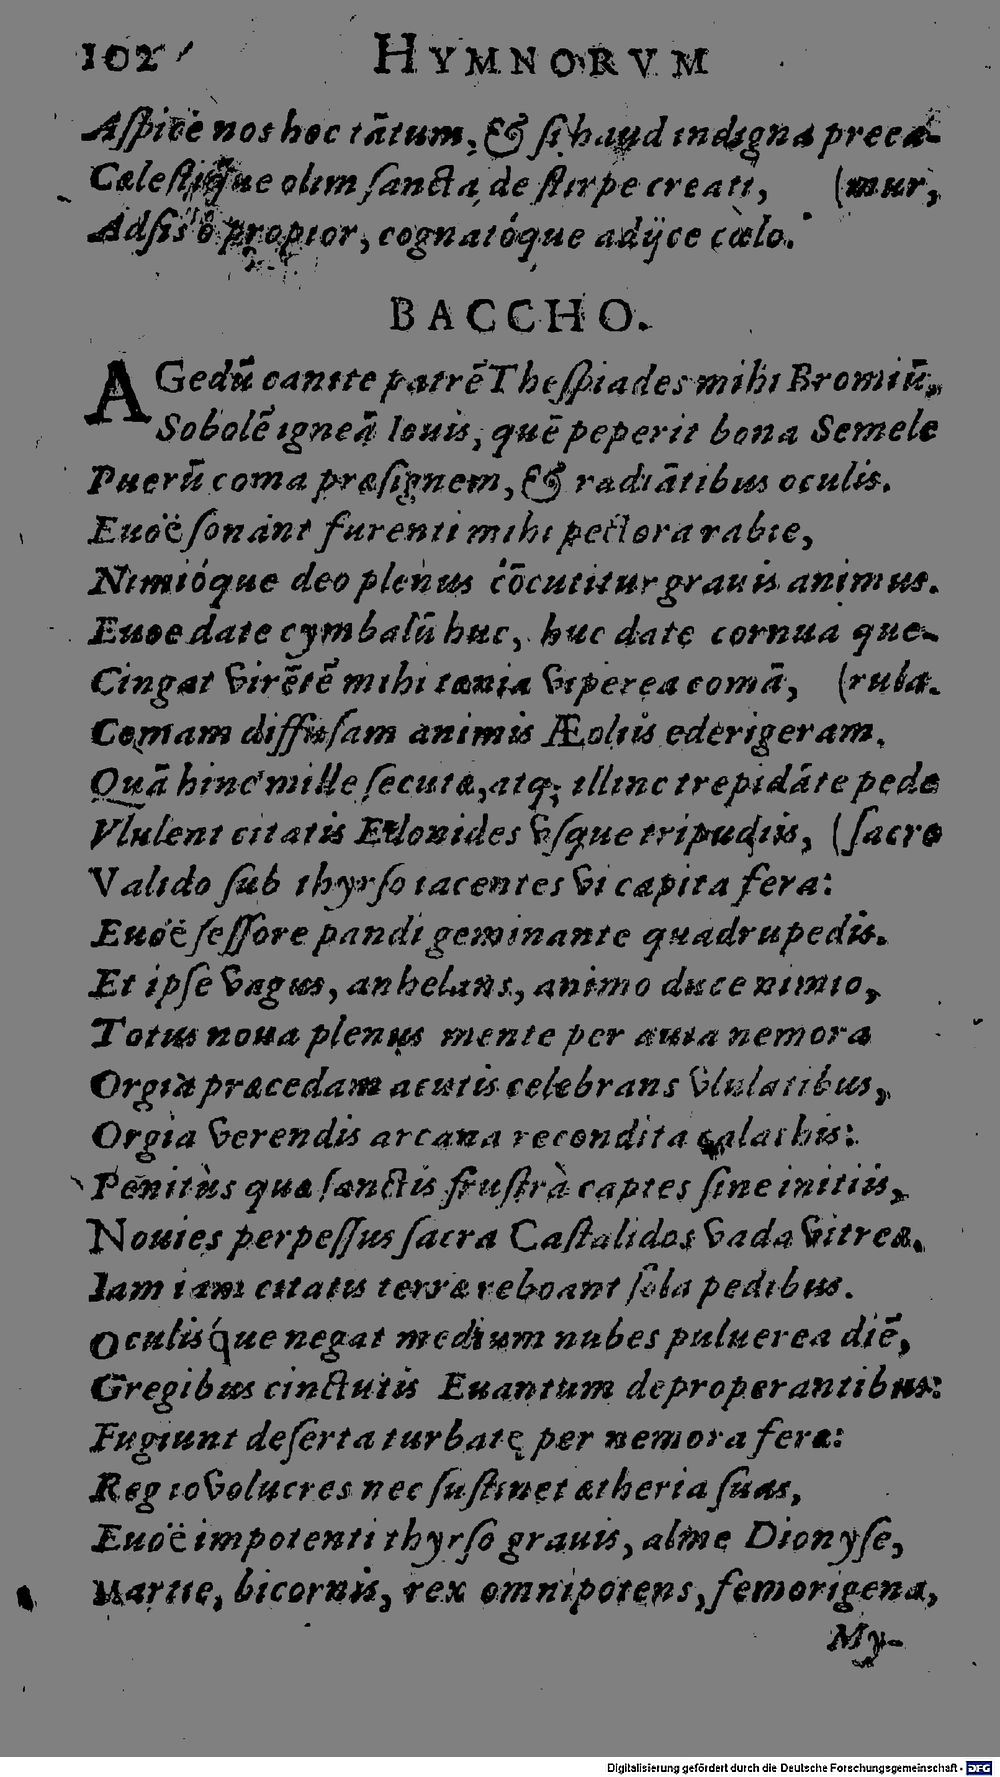 102 HYMNORVM
Aſpice nos hoc tātum, & ſi haud indigna preca-
Cæleſtíque olim ſancta de ſtirpe creati, (mur,
Adſis ô propior, cognatóque adijce cœlo.
BACCHO.
AGedū canite patrē Theſpiades mihi Bromiū,
Sobolē igneā Iouis, quē peperit bona Semele
Puerū coma præſignem, & radiātibus oculis.
Euoë ſonant furenti mihi pectora rabie,
Nimióque deo plenus cōcutitur grauis animus.
Euoe date cymbalū huc, huc date cornua que-
Cingat virētē mihi tænia viperea comā, (rula.
Comam diffuſam animis Æoliis ederigeram.
Quā hinc mille ſecutæ, atq; illinc trepidāte pede
Vlulent citatis Edonides vſque tripudiis, (ſacro
Valido ſub thyrſo iacentes vi capita fera:
Euoë ſeſſore pandi geminante quadrupedis.
Et ipſe vagus, anhelans, animo duce nimio,
Totus noua plenus mente per auia nemora
Orgia præcedam acutis celebrans vlulatibus,
Orgia verendis arcana recondita calathis:
Penitùs quæ ſanctis fruſtrà captes ſine initiis,
Nouies perpeſſus ſacra Caſtalidos vada vitreæ.
Iam iam citatis terræ reboant ſola pedibus.
Oculisque negat medium nubes puluerea diē,
Gregibus cinctutis Euantum deproperantibus:
Fugiunt deſerta turbatę per nemora feræ:
Regio volucres nec ſuſtinet ætheria ſuas,
Euoë impotenti thyrſo grauis, alme Dionyſe,
Martie, bicornis, rex omnipotens, femorigena,
My-
Digitalisierung gefördert durch die Deutsche Forschungsgemeinschaft - DFG